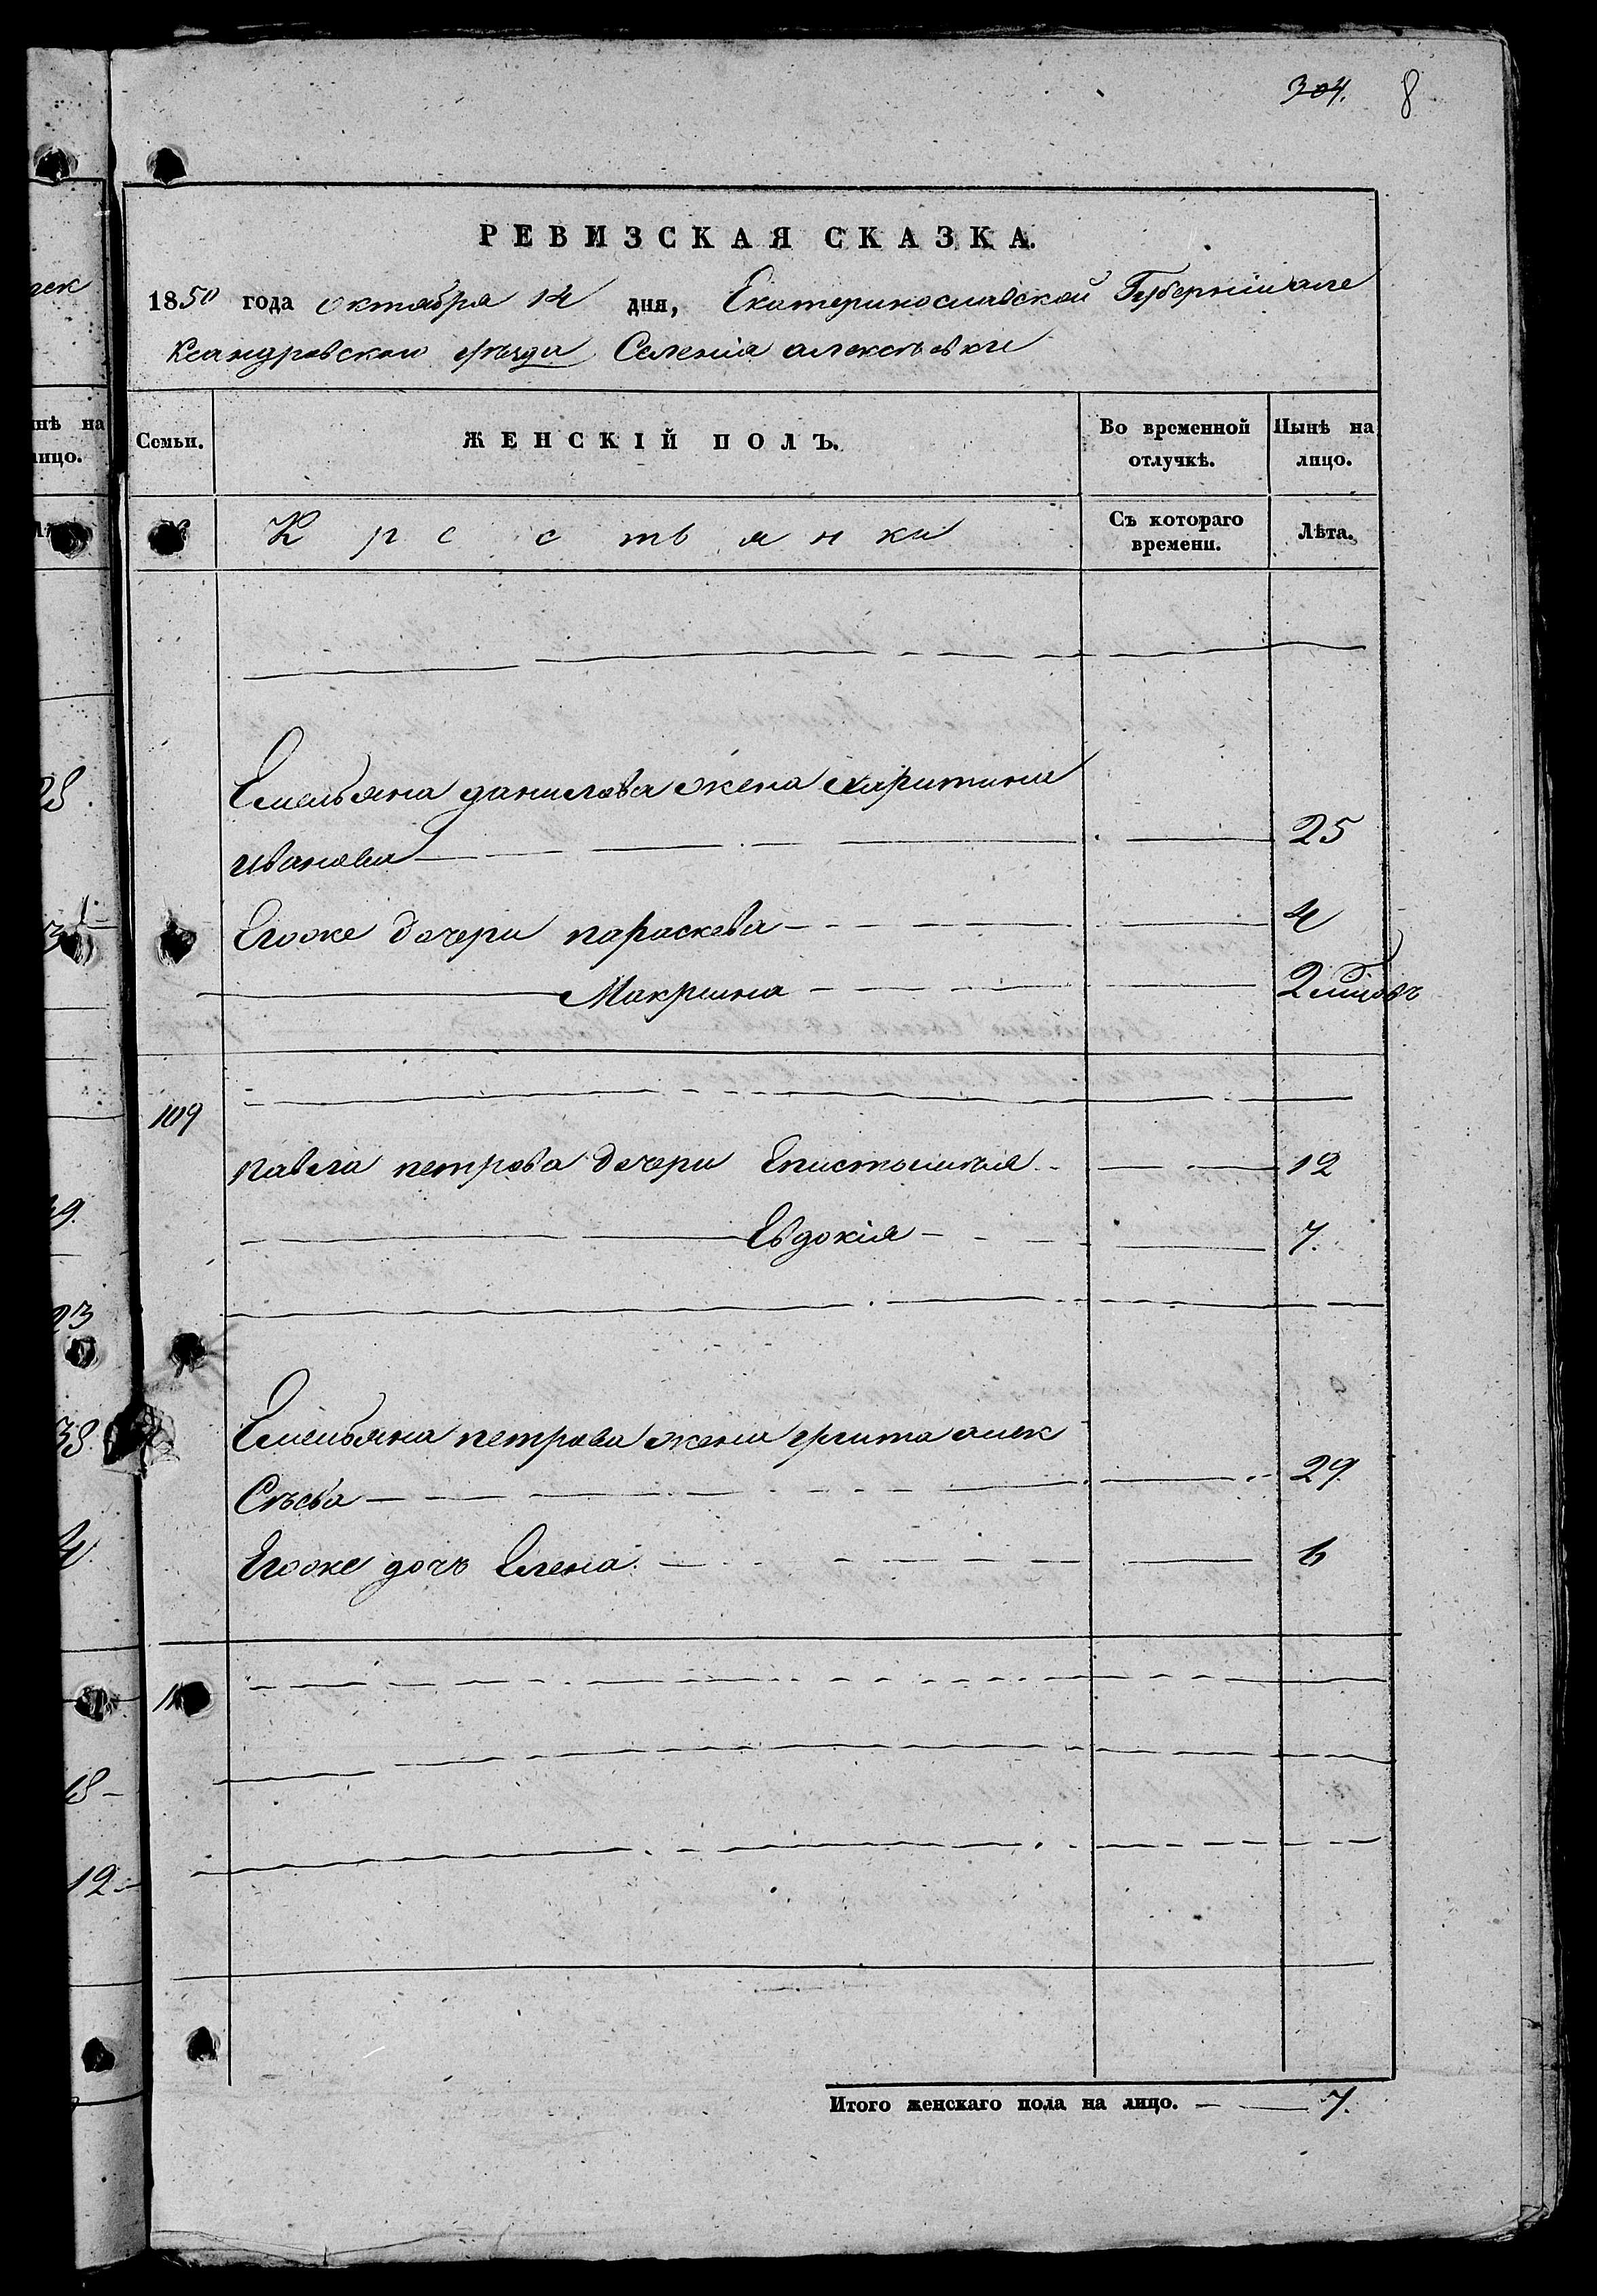 304. 8
РЕВИЗСКАЯ СКАЗКА.
1850 года октября 14 дня, Екатеринославской Губерніи але
ксандровскаго уѣзда Селенія алексѣевки
Семьи. ЖЕНСКІЙ ПОЛЪ. Во временной отлучкѣ. Нынѣ на лицо.
Крестьянки Съ котораго времени. Лѣта.
Емельяна данилова жена Харитина
иванова 25
Егоже дочери параскева 4
Макрина 2
109
павла петрова дочери Епистимия 12
Евдокія 7.
Емельяна петрова жена улита алек
Сѣева 29
Егоже дочь Елена 6
Итого женскаго пола на лицо. 7.